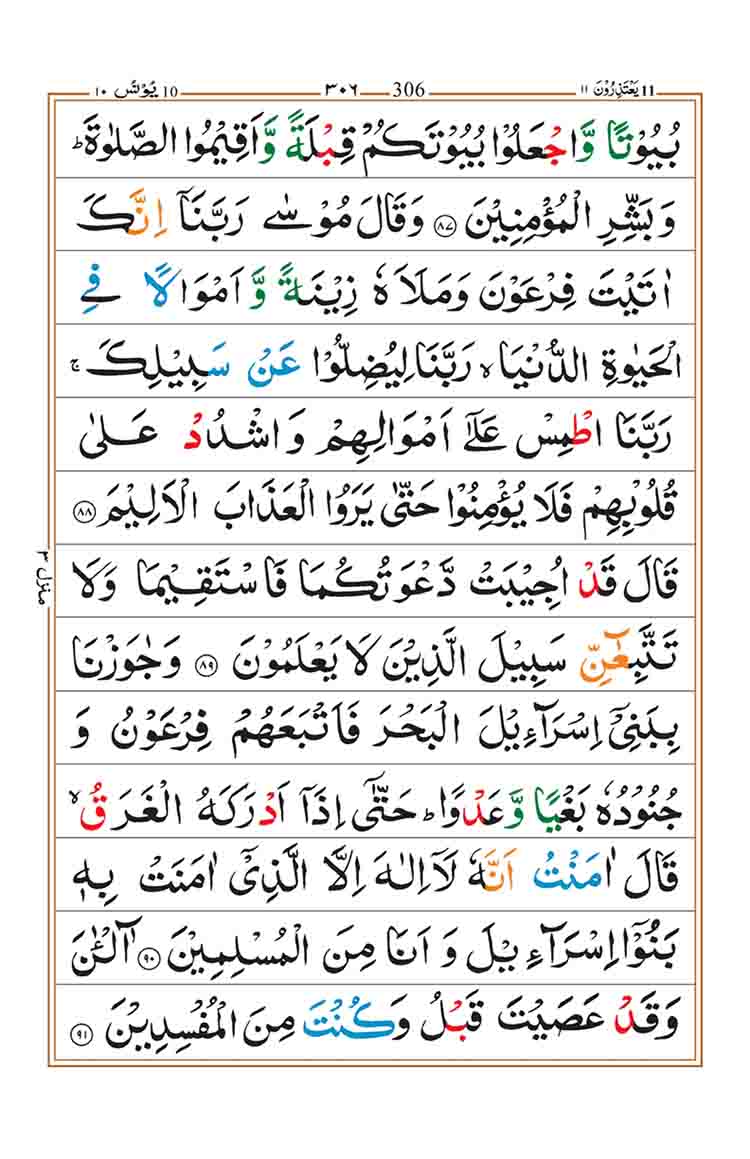 يَعْتَذِرُوْنَ ١١ 11 306 ٣٠٦ 10 يُوْنُس ١٠
بُيُوْتًا وَّاجْعَلُوْا بُيُوْتَكُمْ قِبْلَةً وَّاَقِيْمُوا الصَّلٰوةَ ؕ
وَبَشِّرِ الْمُؤْمِنِيْنَ ۝٨٧ وَقَالَ مُوْسٰى رَبَّنَاۤ اِنَّكَ
اٰتَيْتَ فِرْعَوْنَ وَمَلَاَهٗ زِيْنَةً وَّ اَمْوَالًا فِى
الْحَيٰوةِ الدُّنْيَا ۙ رَبَّنَا لِيُضِلُّوْا عَنْ سَبِيْلِكَ ۚ
رَبَّنَا اطْمِسْ عَلٰٓى اَمْوَالِهِمْ وَاشْدُدْ عَلٰى
قُلُوْبِهِمْ فَلَا يُؤْمِنُوْا حَتّٰى يَرَوُا الْعَذَابَ الْاَلِيْمَ ۝٨٨
قَالَ قَدْ اُجِيْبَتْ دَّعْوَتُكُمَا فَاسْتَقِيْمَا وَلَا
تَتَّبِعٰٓنِّ سَبِيْلَ الَّذِيْنَ لَا يَعْلَمُوْنَ ۝٨٩ وَجٰوَزْنَا
بِبَنِىْۤ اِسْرَآءِيْلَ الْبَحْرَ فَاَتْبَعَهُمْ فِرْعَوْنُ وَ
جُنُوْدُهٗ بَغْيًا وَّعَدْوًا ؕ حَتّٰۤى اِذَاۤ اَدْرَكَهُ الْغَرَقُ ۙ
قَالَ اٰمَنْتُ اَنَّهٗ لَاۤ اِلٰهَ اِلَّا الَّذِىْۤ اٰمَنَتْ بِهٖ
بَنُوْۤا اِسْرَآءِيْلَ وَ اَنَا مِنَ الْمُسْلِمِيْنَ ۝٩٠ آٰلْـٰٔنَ
وَقَدْ عَصَيْتَ قَبْلُ وَكُنْتَ مِنَ الْمُفْسِدِيْنَ ۝٩١
منزل ٣